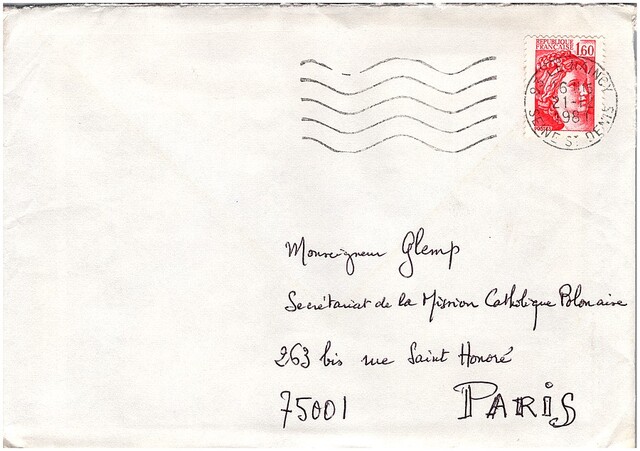 REPUBLIQUE
FRANÇAISE 1,60
LE RAINCY
21-
198
SEINE ST DENIS
Monseigneur Glemp
Secrétariat de la Mission Catholique Polonaise
263 bis rue Saint Honoré
75001 PARIS